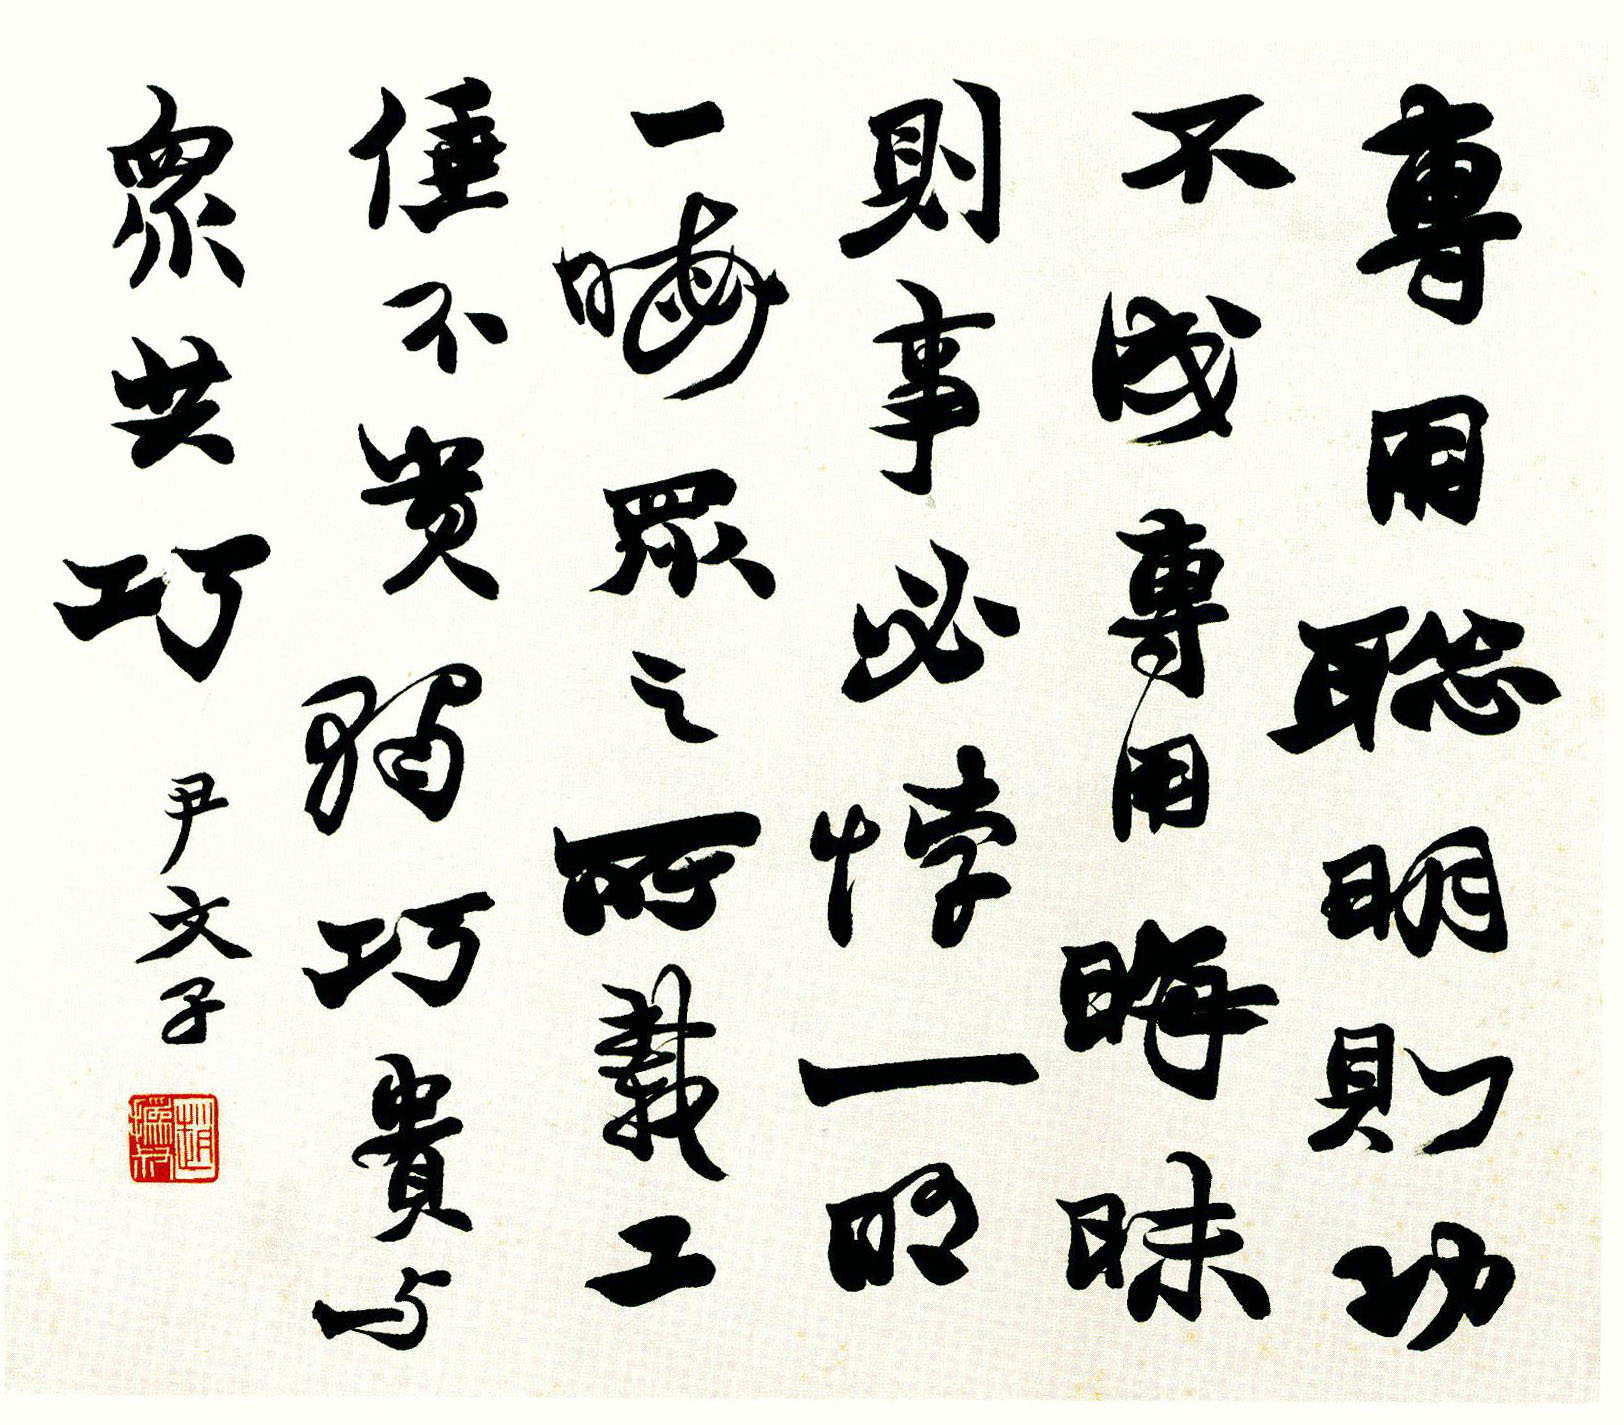 專用聰明則功
不成專用晦昧
則事必悖一明
一晦眾之所載工
倕不貴獨巧貴与
眾共巧
尹文子